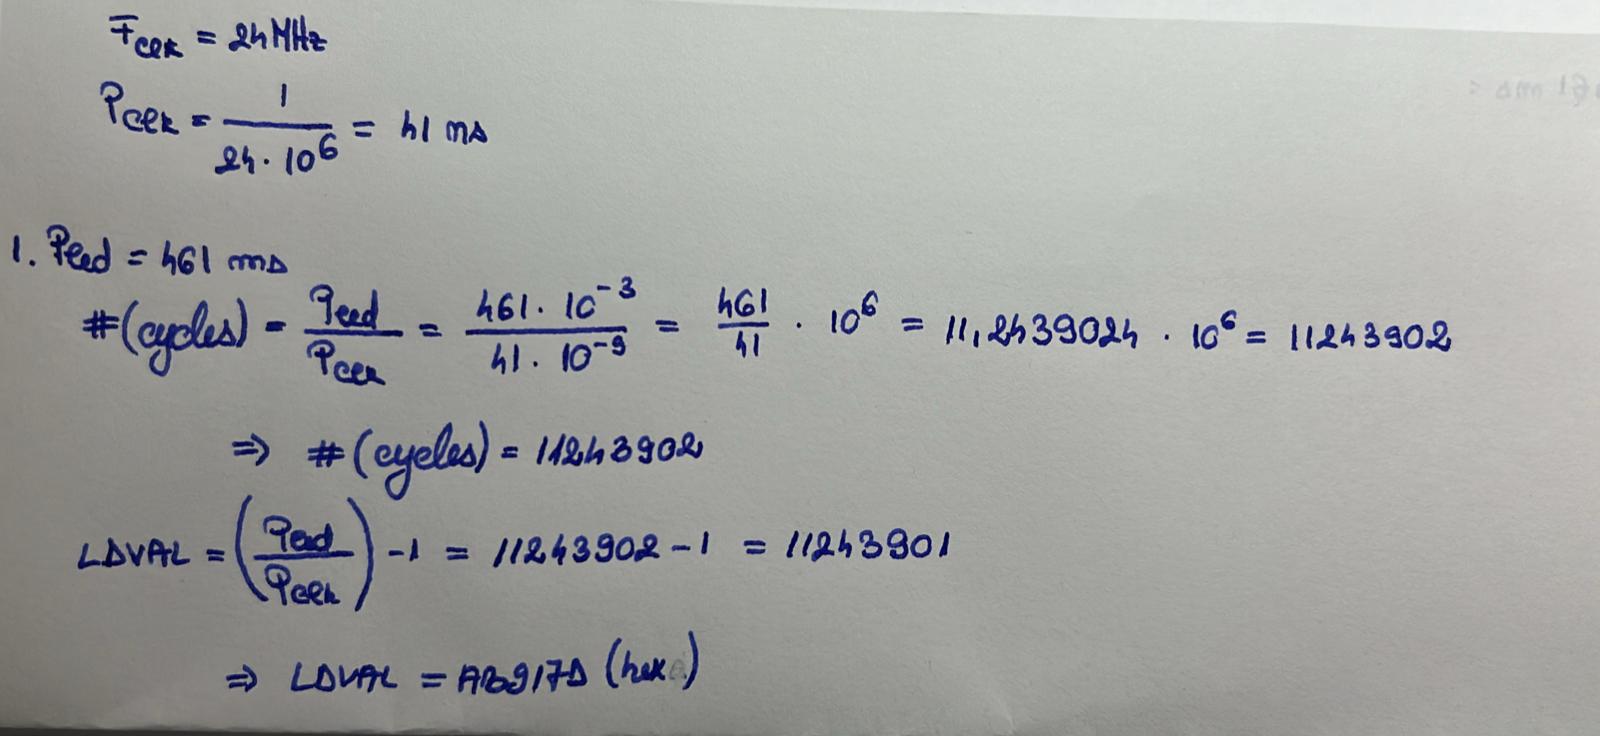 Fclk = 24 MHz
Pclk = 1 / (24 · 10^6) = 41 ns
1. Pled = 461 ms
#(cycles) = Pled / Pclk = (461 · 10^-3) / (41 · 10^-9) = 461/41 · 10^6 = 11,2439024 · 10^6 = 11243902
⇒ #(cycles) = 11243902
LDVAL = (Pled / Pclk) - 1 = 11243902 - 1 = 11243901
⇒ LDVAL = AB917D (hex)